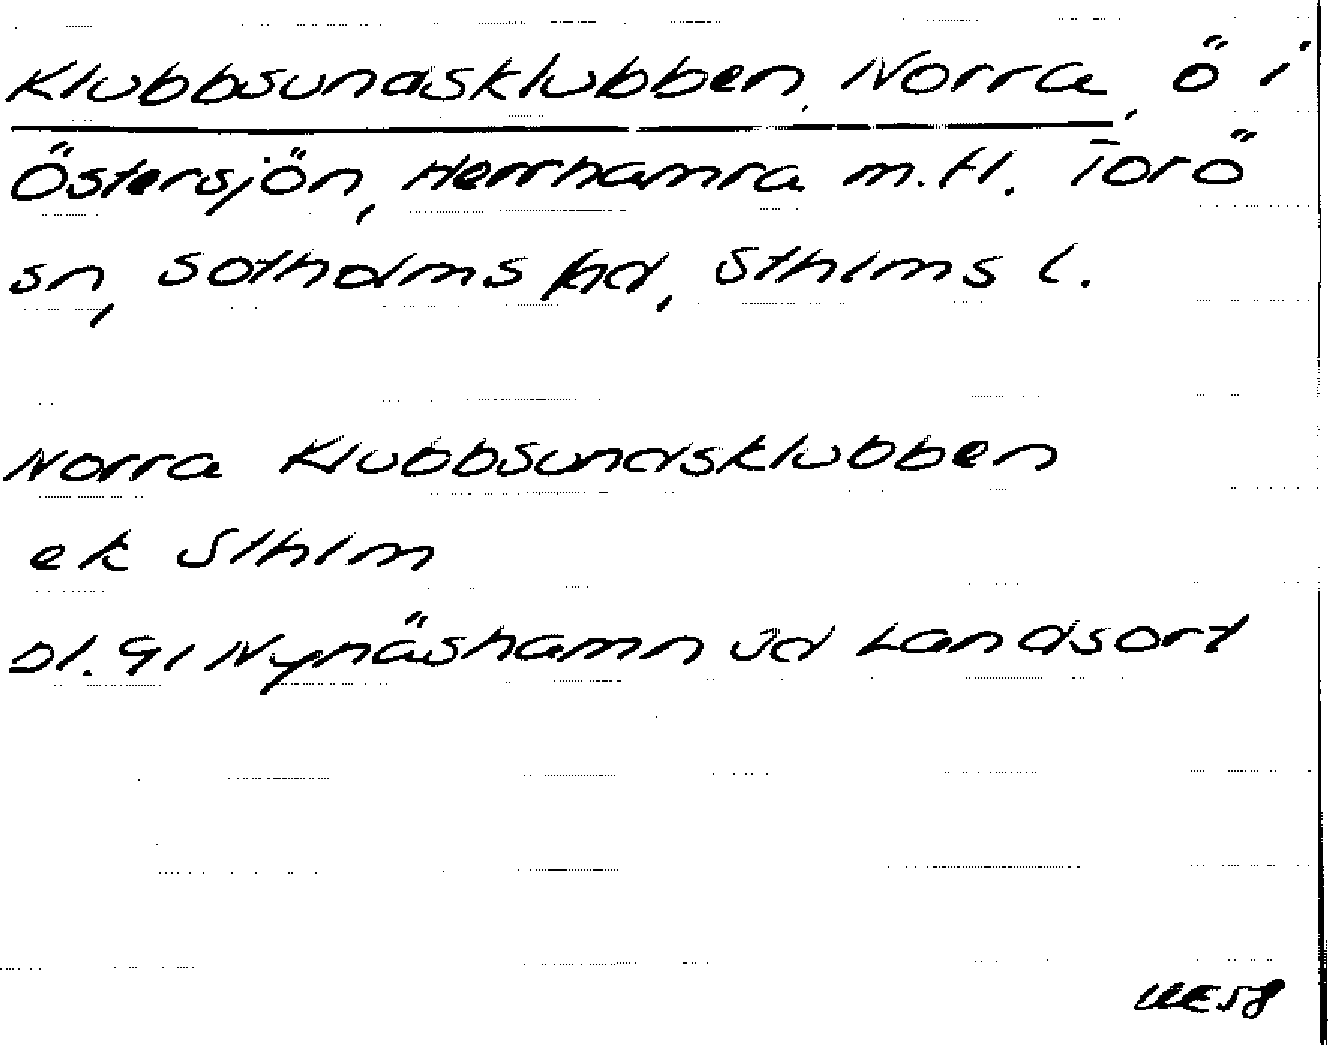 Klubbsundsklubben, Norra, ö i
Östersjön, Herrhamra m.fl. Torö
sn, Sotholms hd, Sthlms l.
Norra Klubbsundsklubben
ek Sthlm
Bl. 91 Nynäshamn Landsort